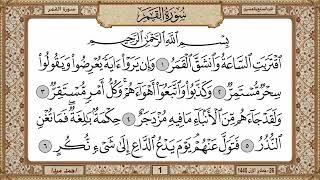 سورة القمر
سُورَةُ القَمَرِ
بِسْمِ اللَّهِ الرَّحْمَٰنِ الرَّحِيمِ
اقْتَرَبَتِ السَّاعَةُ وَانشَقَّ الْقَمَرُ ١ وَإِن يَرَوْا آيَةً يُعْرِضُوا وَيَقُولُوا
سِحْرٌ مُّسْتَمِرٌّ ٢ وَكَذَّبُوا وَاتَّبَعُوا أَهْوَاءَهُمْ وَكُلُّ أَمْرٍ مُّسْتَقِرٌّ ٣
وَلَقَدْ جَاءَهُم مِّنَ الْأَنبَاءِ مَا فِيهِ مُزْدَجَرٌ ٤ حِكْمَةٌ بَالِغَةٌ فَمَا تُغْنِ
النُّذُرُ ٥ فَتَوَلَّ عَنْهُمْ يَوْمَ يَدْعُ الدَّاعِ إِلَىٰ شَيْءٍ نُّكُرٍ ٦
1
1440